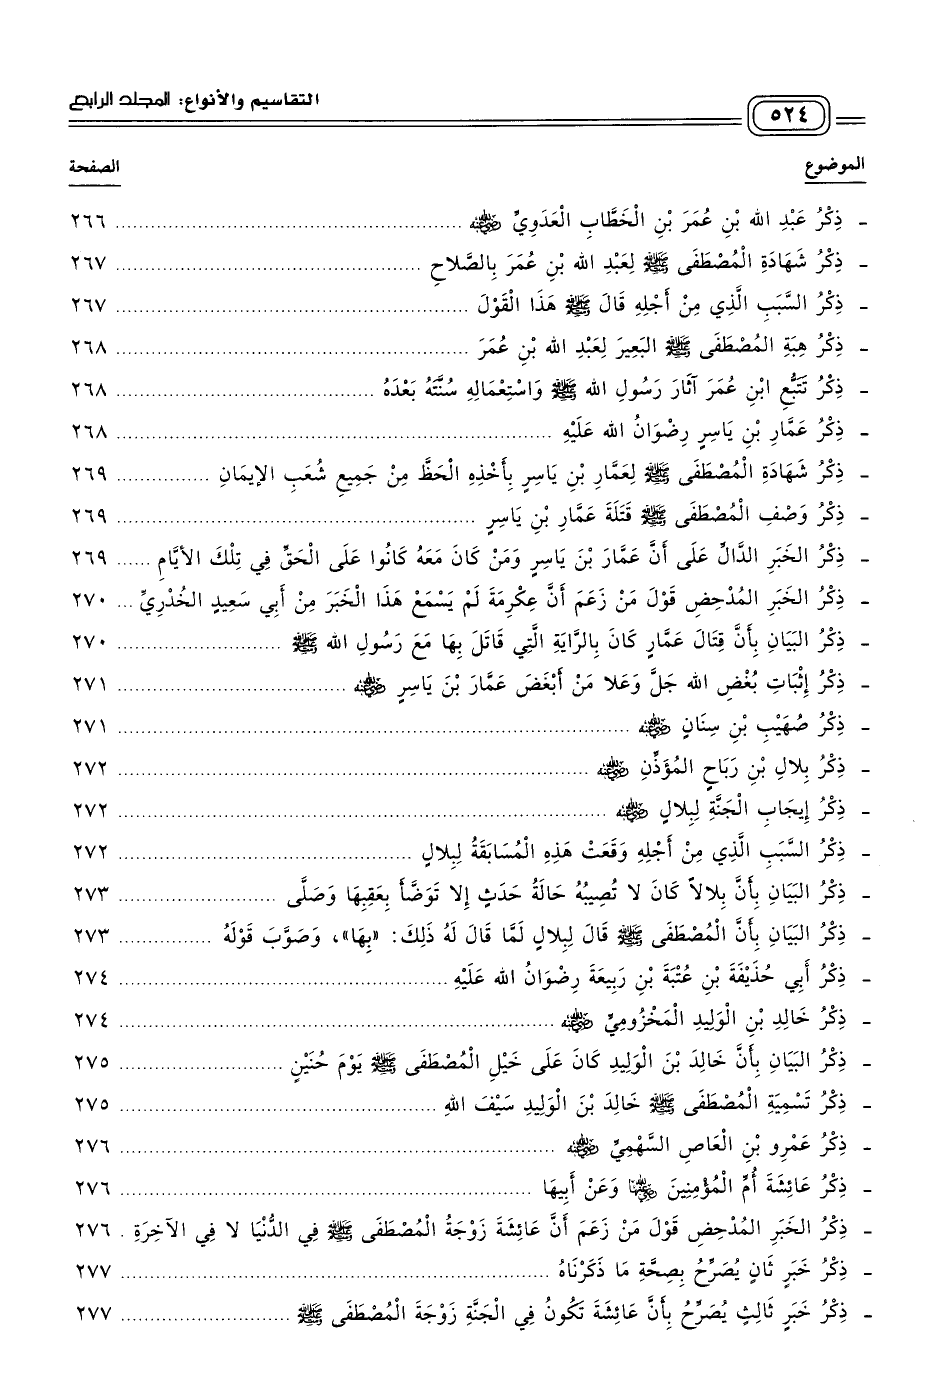 التقاسيم والأنواع: المجلد الرابع
٥٢٤
الموضوع الصفحة
- ذِكْرُ عَبْدِ الله بْنِ عُمَرَ بْنِ الْخَطَّابِ الْعَدَوِيِّ ﵁ ........ ٢٦٦
- ذِكْرُ شَهَادَةِ الْمُصْطَفَى ﷺ لِعَبْدِ الله بْنِ عُمَرَ بِالصَّلاحِ ........ ٢٦٧
- ذِكْرُ السَّبَبِ الَّذِي مِنْ أَجْلِهِ قَالَ ﷺ هَذَا الْقَوْلَ ........ ٢٦٧
- ذِكْرُ هِبَةِ الْمُصْطَفَى ﷺ البَعِيرَ لِعَبْدِ الله بْنِ عُمَرَ ........ ٢٦٨
- ذِكْرُ تَتَبُّعِ ابْنِ عُمَرَ آثَارَ رَسُولِ الله ﷺ وَاسْتِعْمَالِهِ سُنَّتَهُ بَعْدَهُ ........ ٢٦٨
- ذِكْرُ عَمَّارِ بْنِ يَاسِرٍ رِضْوَانُ الله عَلَيْهِ ........ ٢٦٨
- ذِكْرُ شَهَادَةِ الْمُصْطَفَى ﷺ لِعَمَّارِ بْنِ يَاسِرٍ بِأَخْذِهِ الْحَظَّ مِنْ جَمِيعِ شُعَبِ الإيمَانِ ........ ٢٦٩
- ذِكْرُ وَصْفِ الْمُصْطَفَى ﷺ قَتَلَةَ عَمَّارِ بْنِ يَاسِرٍ ........ ٢٦٩
- ذِكْرُ الخَبَرِ الدَّالِّ عَلَى أَنَّ عَمَّارَ بْنَ يَاسِرٍ وَمَنْ كَانَ مَعَهُ كَانُوا عَلَى الْحَقِّ فِي تِلْكَ الأيَّامِ ...... ٢٦٩
- ذِكْرُ الخَبَرِ المُدْحِضِ قَوْلَ مَنْ زَعَمَ أَنَّ عِكْرِمَةَ لَمْ يَسْمَعْ هَذَا الْخَبَرَ مِنْ أَبِي سَعِيدٍ الخُدْرِيِّ ... ٢٧٠
- ذِكْرُ البَيَانِ بِأَنَّ قِتَالَ عَمَّارٍ كَانَ بِالرَّايَةِ الَّتِي قَاتَلَ بِهَا مَعَ رَسُولِ الله ﷺ ........ ٢٧٠
- ذِكْرُ إِثْبَاتِ بُغْضِ الله جَلَّ وَعَلا مَنْ أَبْغَضَ عَمَّارَ بْنَ يَاسِرٍ ﵁ ........ ٢٧١
- ذِكْرُ صُهَيْبِ بْنِ سِنَانٍ ﵁ ........ ٢٧١
- ذِكْرُ بِلالِ بْنِ رَبَاحٍ المُؤَذِّنِ ﵁ ........ ٢٧٢
- ذِكْرُ إِيجَابِ الْجَنَّةِ لِبِلالٍ ﵁ ........ ٢٧٢
- ذِكْرُ السَّبَبِ الَّذِي مِنْ أَجْلِهِ وَقَعَتْ هَذِهِ الْمُسَابَقَةُ لِبِلالٍ ........ ٢٧٢
- ذِكْرُ البَيَانِ بِأَنَّ بِلالاً كَانَ لا تُصِيبُهُ حَالَةُ حَدَثٍ إِلا تَوَضَّأَ بِعَقِبِهَا وَصَلَّى ........ ٢٧٣
- ذِكْرُ البَيَانِ بِأَنَّ الْمُصْطَفَى ﷺ قَالَ لِبِلالٍ لَمَّا قَالَ لَهُ ذَلِكَ: «بِهَا»، وَصَوَّبَ قَوْلَهُ ........ ٢٧٣
- ذِكْرُ أَبِي حُذَيْفَةَ بْنِ عُتْبَةَ بْنِ رَبِيعَةَ رِضْوَانُ الله عَلَيْهِ ........ ٢٧٤
- ذِكْرُ خَالِدِ بْنِ الْوَلِيدِ الْمَخْزُومِيِّ ﵁ ........ ٢٧٤
- ذِكْرُ البَيَانِ بِأَنَّ خَالِدَ بْنَ الْوَلِيدِ كَانَ عَلَى خَيْلِ الْمُصْطَفَى ﷺ يَوْمَ حُنَيْنٍ ........ ٢٧٥
- ذِكْرُ تَسْمِيَةِ الْمُصْطَفَى ﷺ خَالِدَ بْنَ الْوَلِيدِ سَيْفَ اللهِ ........ ٢٧٥
- ذِكْرُ عَمْرِو بْنِ الْعَاصِ السَّهْمِيِّ ﵁ ........ ٢٧٦
- ذِكْرُ عَائِشَةَ أُمِّ الْمُؤْمِنِينَ ﵂ وَعَنْ أَبِيهَا ........ ٢٧٦
- ذِكْرُ الخَبَرِ المُدْحِضِ قَوْلَ مَنْ زَعَمَ أَنَّ عَائِشَةَ زَوْجَةُ الْمُصْطَفَى ﷺ فِي الدُّنْيَا لا فِي الآخِرَةِ . ٢٧٦
- ذِكْرُ خَبَرٍ ثَانٍ يُصَرِّحُ بِصِحَّةِ مَا ذَكَرْنَاهُ ........ ٢٧٧
- ذِكْرُ خَبَرٍ ثَالِثٍ يُصَرِّحُ بِأَنَّ عَائِشَةَ تَكُونُ فِي الْجَنَّةِ زَوْجَةَ الْمُصْطَفَى ﷺ ........ ٢٧٧